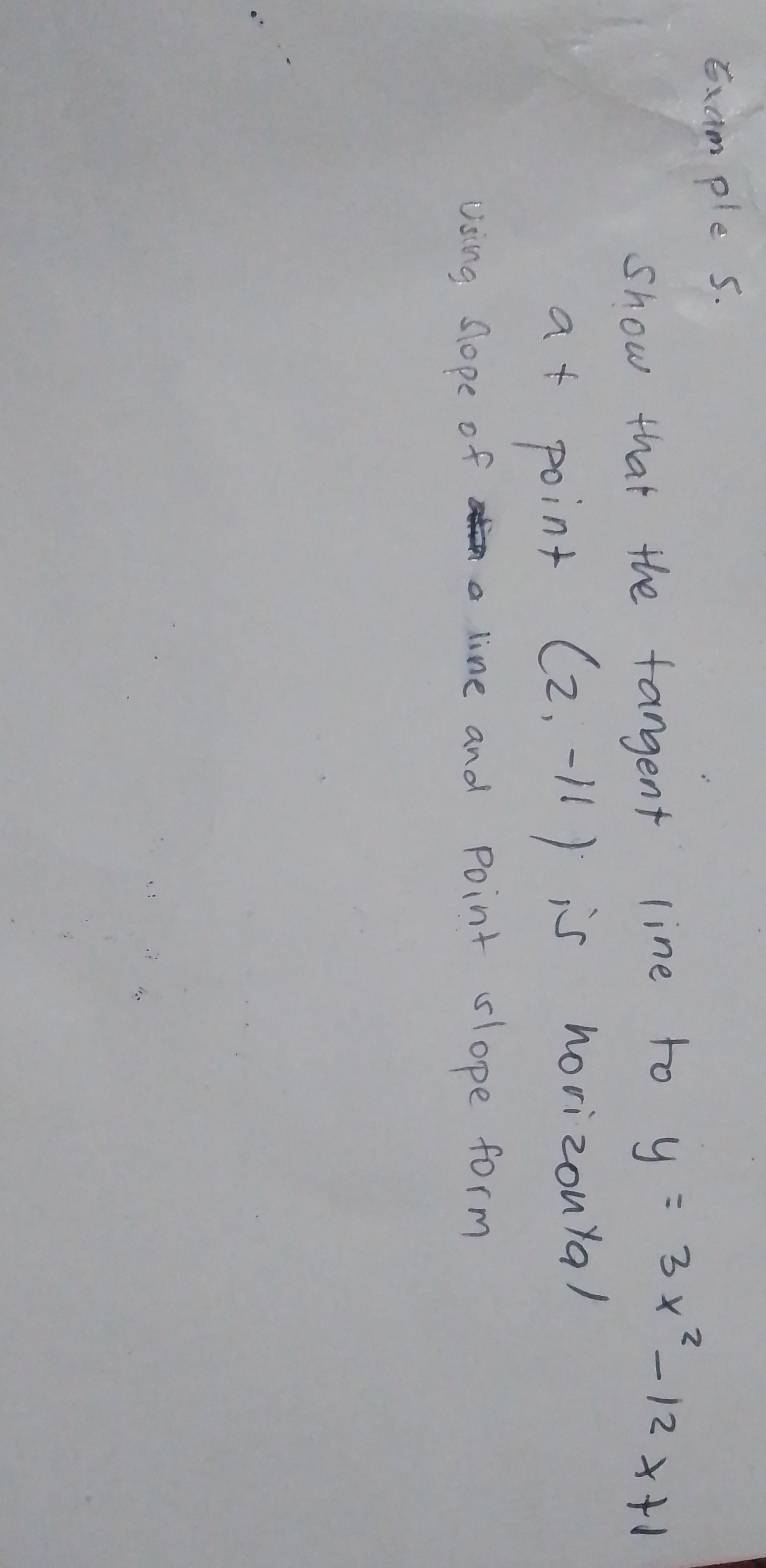 Example 5.
Show that the tangent line to y = 3x² - 12x+1
at point (2, -11) is horizontal
Using slope of a line and Point slope form